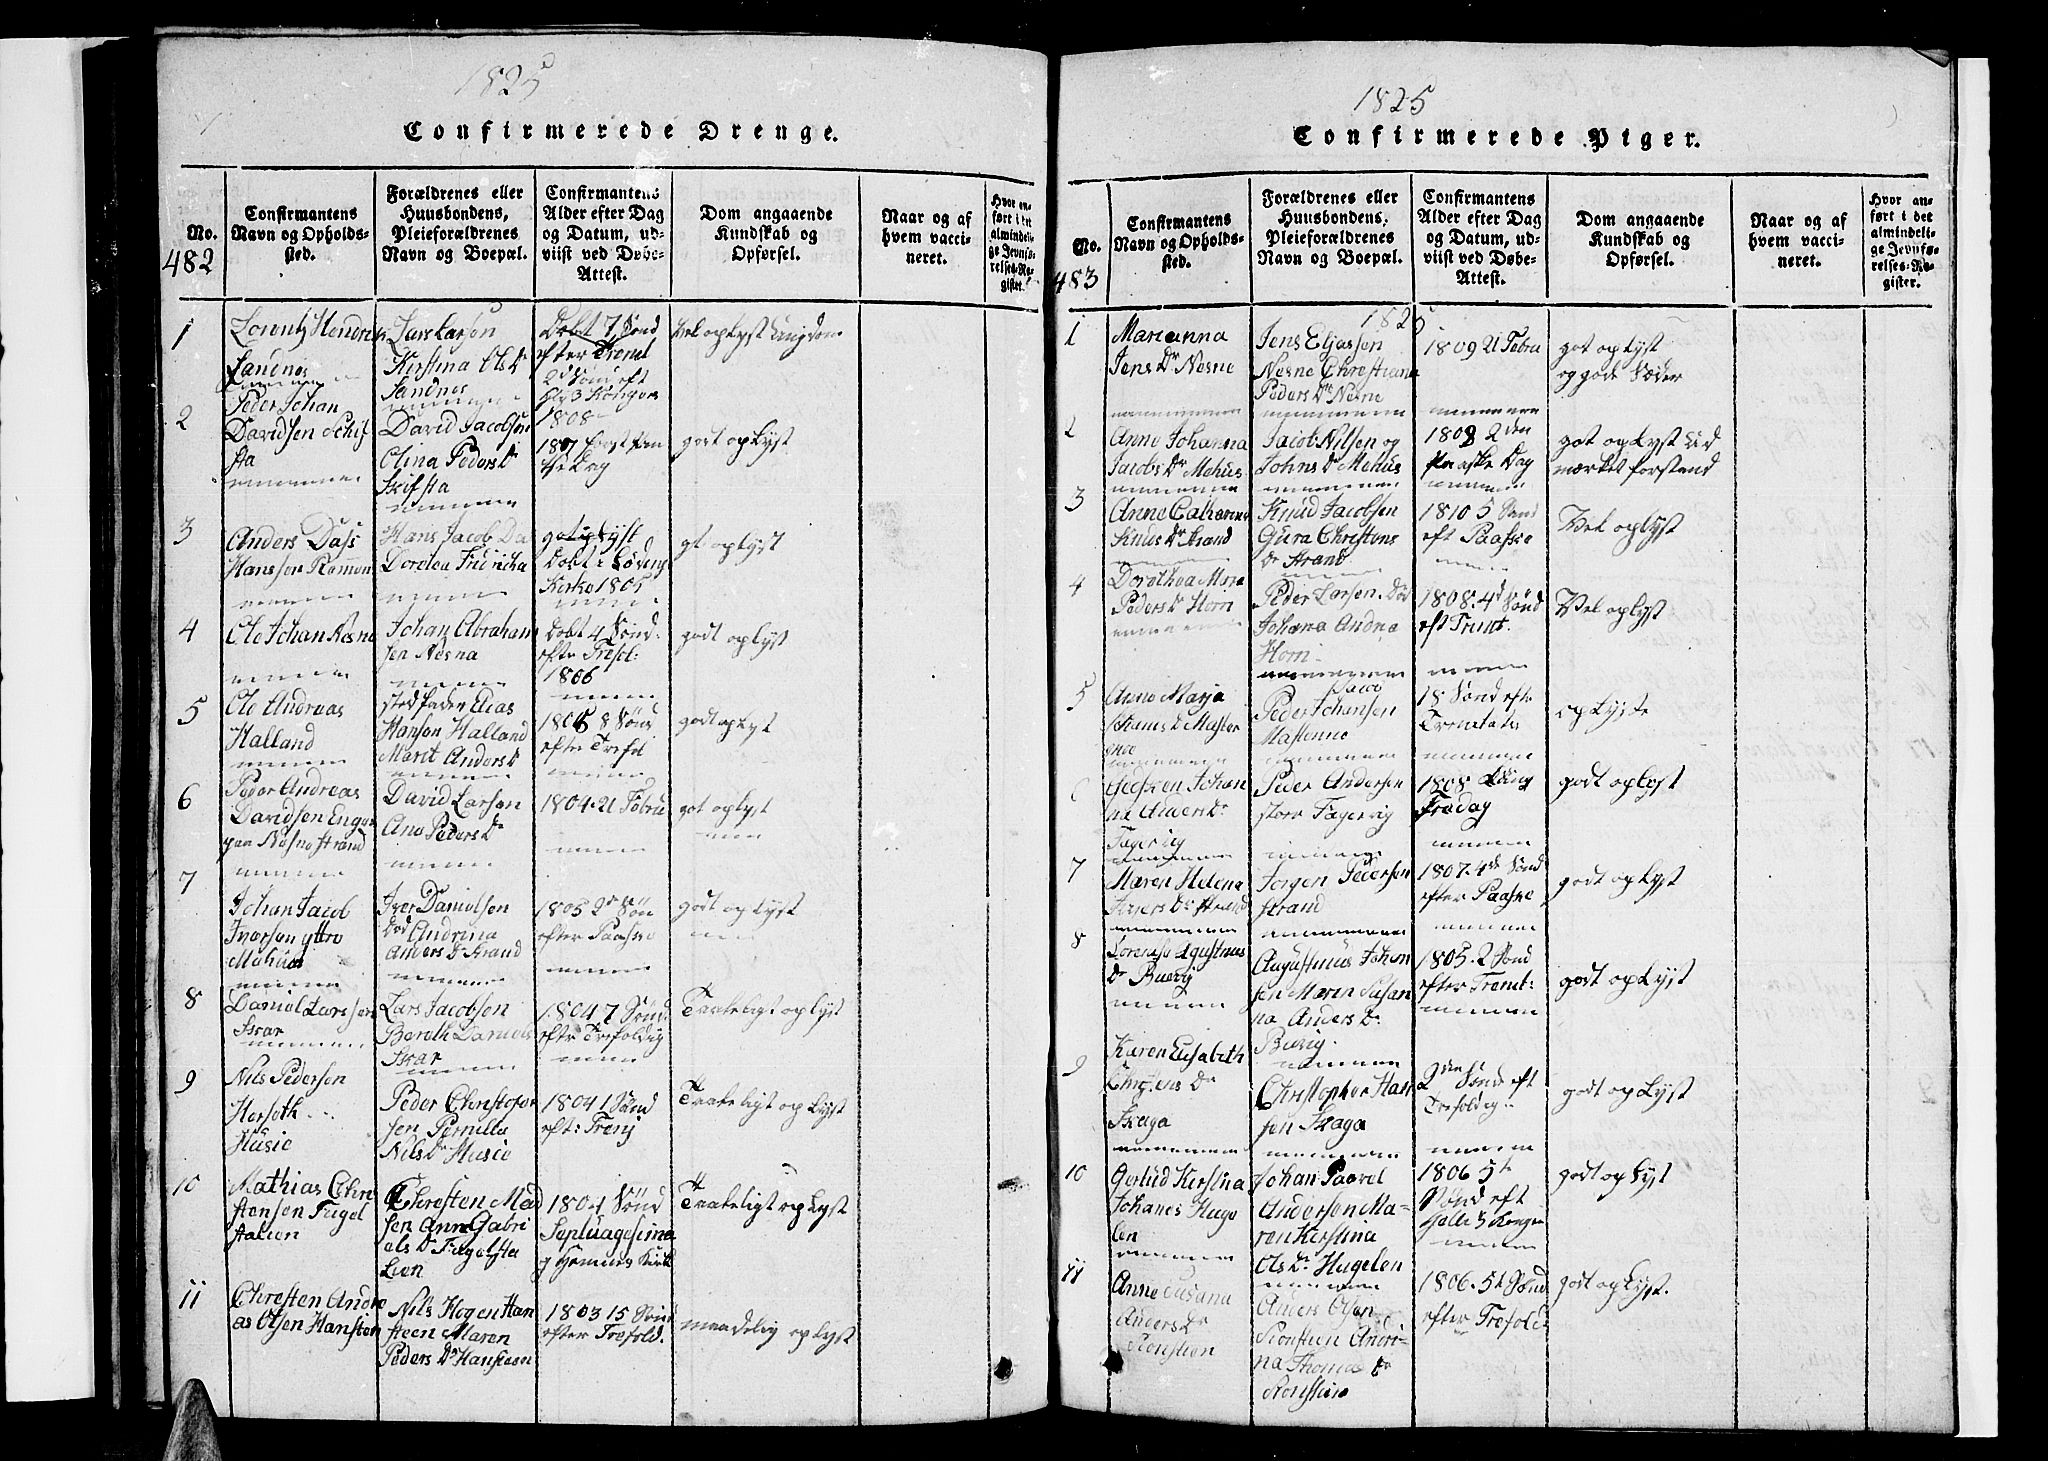 1825
Confirmerede Drenge.
No.
482
Confirmantens
Navn og Opholds-
sted.
Forældrenes eller
Huusbondens,
Pleieforældrenes
Navn og Boepæl.
Confirmantens
Alder efter Dag
og Datum, ud-
viist ved Døbe-
Attest.
Dom angaaende
Kundskab og
Opførsel.
Naar og af
hvem vacci-
neret.
Hvor an-
ført i det
almindeli-
ge Jevnfø-
relses-Re-
gister.
1
Lorentz Hendrik
Sandnes
Lars Larson
Kirstina Ols Dr
Sandnes
Døbt 7 Sønd
efter Trenit
vel oplyst Ungdom
2
Peder Johan
Davidsen Schif
sta
David Jacobsen
Olina Peders Dr
Skifsta
2d Sønd eft
Hlg 3 Konger
1808
1807 først Pen
tse Dag
godt oplyst
3
Anders Dass
Hanssen Remen
Hans Jacob Da
Dordea Fridricha
got oplyst
Døbt i
Kirke 1805
gt oplyst
4
Ole Johan Nesne
Johan Abraham
sen Nesna
Døbt 4 Sønd
efter Trefol:
1806
godt oplyst
5
Ole Andreas
Halland
stedfaden Elias
Hanson Halland
Marit Anders D
1806 8 Sønd
efter Trefol
godt oplyst
6
Peder Andreas
Davidsen Enge
paa Nesne strand
David Larson
Ane Peders Dr
1804 21 Febru
got oplyst
7
Johan Jacob
Iverson yttre
Iver Danielsen
Død Andrina
Anders Dr Strand
1805 2 Søn
efter Paaske
godt oplyst
8
Daniel Larssen
Skar
Lars Jacobsen
Bereth Daniels
Skar
1804 7 Sønd
efter Trefoldig
Traateligt oplyst
9
Nils Pederson
Horseth
Husie
Peder Christofer
sen Pernilla
Nils Dr Husie
1804 1 Sønd
eft: Trenj
Traateligt oplyst
10
Mathias Chre
stensen Fugel
stalien
Chresten Mad
sen Anne Gabri
els Dr Fugelsta
Lien
1804 Sønd
Septuagesima
j Hemnes Kirk
Traateligt oplyst
11
Chresten Andre
as Olsen Hansteen
Nils Hogen Han
steen Maren
Peders Dr Hansteen
1803 15 Sønd
efter Trefold.
maadelig oplyst
1825
Confirmerede Piger.
No.
483
Confirmantens
Navn og Opholds-
sted.
Forældrenes eller
Huusbondens,
Pleieforældrenes
Navn og Boepæl.
Confirmantens
Alder efter Dag
og Datum, ud-
viist ved Døbe-
Attest.
Dom angaaende
Kundskab og
Opførsel.
Naar og af
hvem vacci-
neret.
Hvor an-
ført i det
almindeli-
ge Jevnfø-
relses-Re-
gister.
1825
1
Marianna
Jens Dr Nesne
Jens Eljassen
Nesne Chrestiana
Peders Dr Nesne
1809 21 Febru
got oplyst
og gode Sæder
2
Anne Johanna
Jacobs Dr Mehus
Jacob Nilsen og
Johns Dr Mehus
1808 2den
Paaske Dag
got oplyst Ud
mærket forstand
3
Anne Catharine
Knus Dr Strand
Knud Jacobsen
Gura Christens
Dr Strand
1810 5 Sønd
eft Paaske
Vel oplyst
4
Dorothea Mare
Peders Dr Horn
Peder Larsen Død
Johana Andrea
Horn
1808. 4d Sønd
eft Trint.
Vel oplyst
5
Anne Marja
Jacob
Peder Johansen
Maslenne
18 Sønd efte
Trenitatis
oplyste
Johan
na Anders Dr
Fagervig
Peder Andersen
store Fagervig
1808 Lang
Fredag
godt oplyst
7
Maren Helena
Jørgen Pedersen
Strand
1807. 4de Sønd
efter Paaske
godt oplyst
8
Lorensa Agustinus
Dr Buvig
Augustinus Johan
sen Maren Susan
na Anders Dr
Buvig.
1805. 2 Sønd
efter Trenit:
godt oplyst
9
Karen Elisabeth
Dr
Skaga
Christopher Han
sen Skaga
2den Sønd eft
Trefoldig:
godt oplyst
10
Gerlud Kirstina
Johanes Huge
len
Johan Paavel
Andersen Ma-
ren Kirstina
Ols Dr Hugelen
1806 5t
Sønd eft
Helle 3 Konger
godt oplyst
11
Anne Susana
Anders Dr
Ronstien
Anders Olsen
Ronstien Andri-
na Thomæ Dr
Ronstien
1806. 5t Sønd
efter Trefold:
godt oplyst.